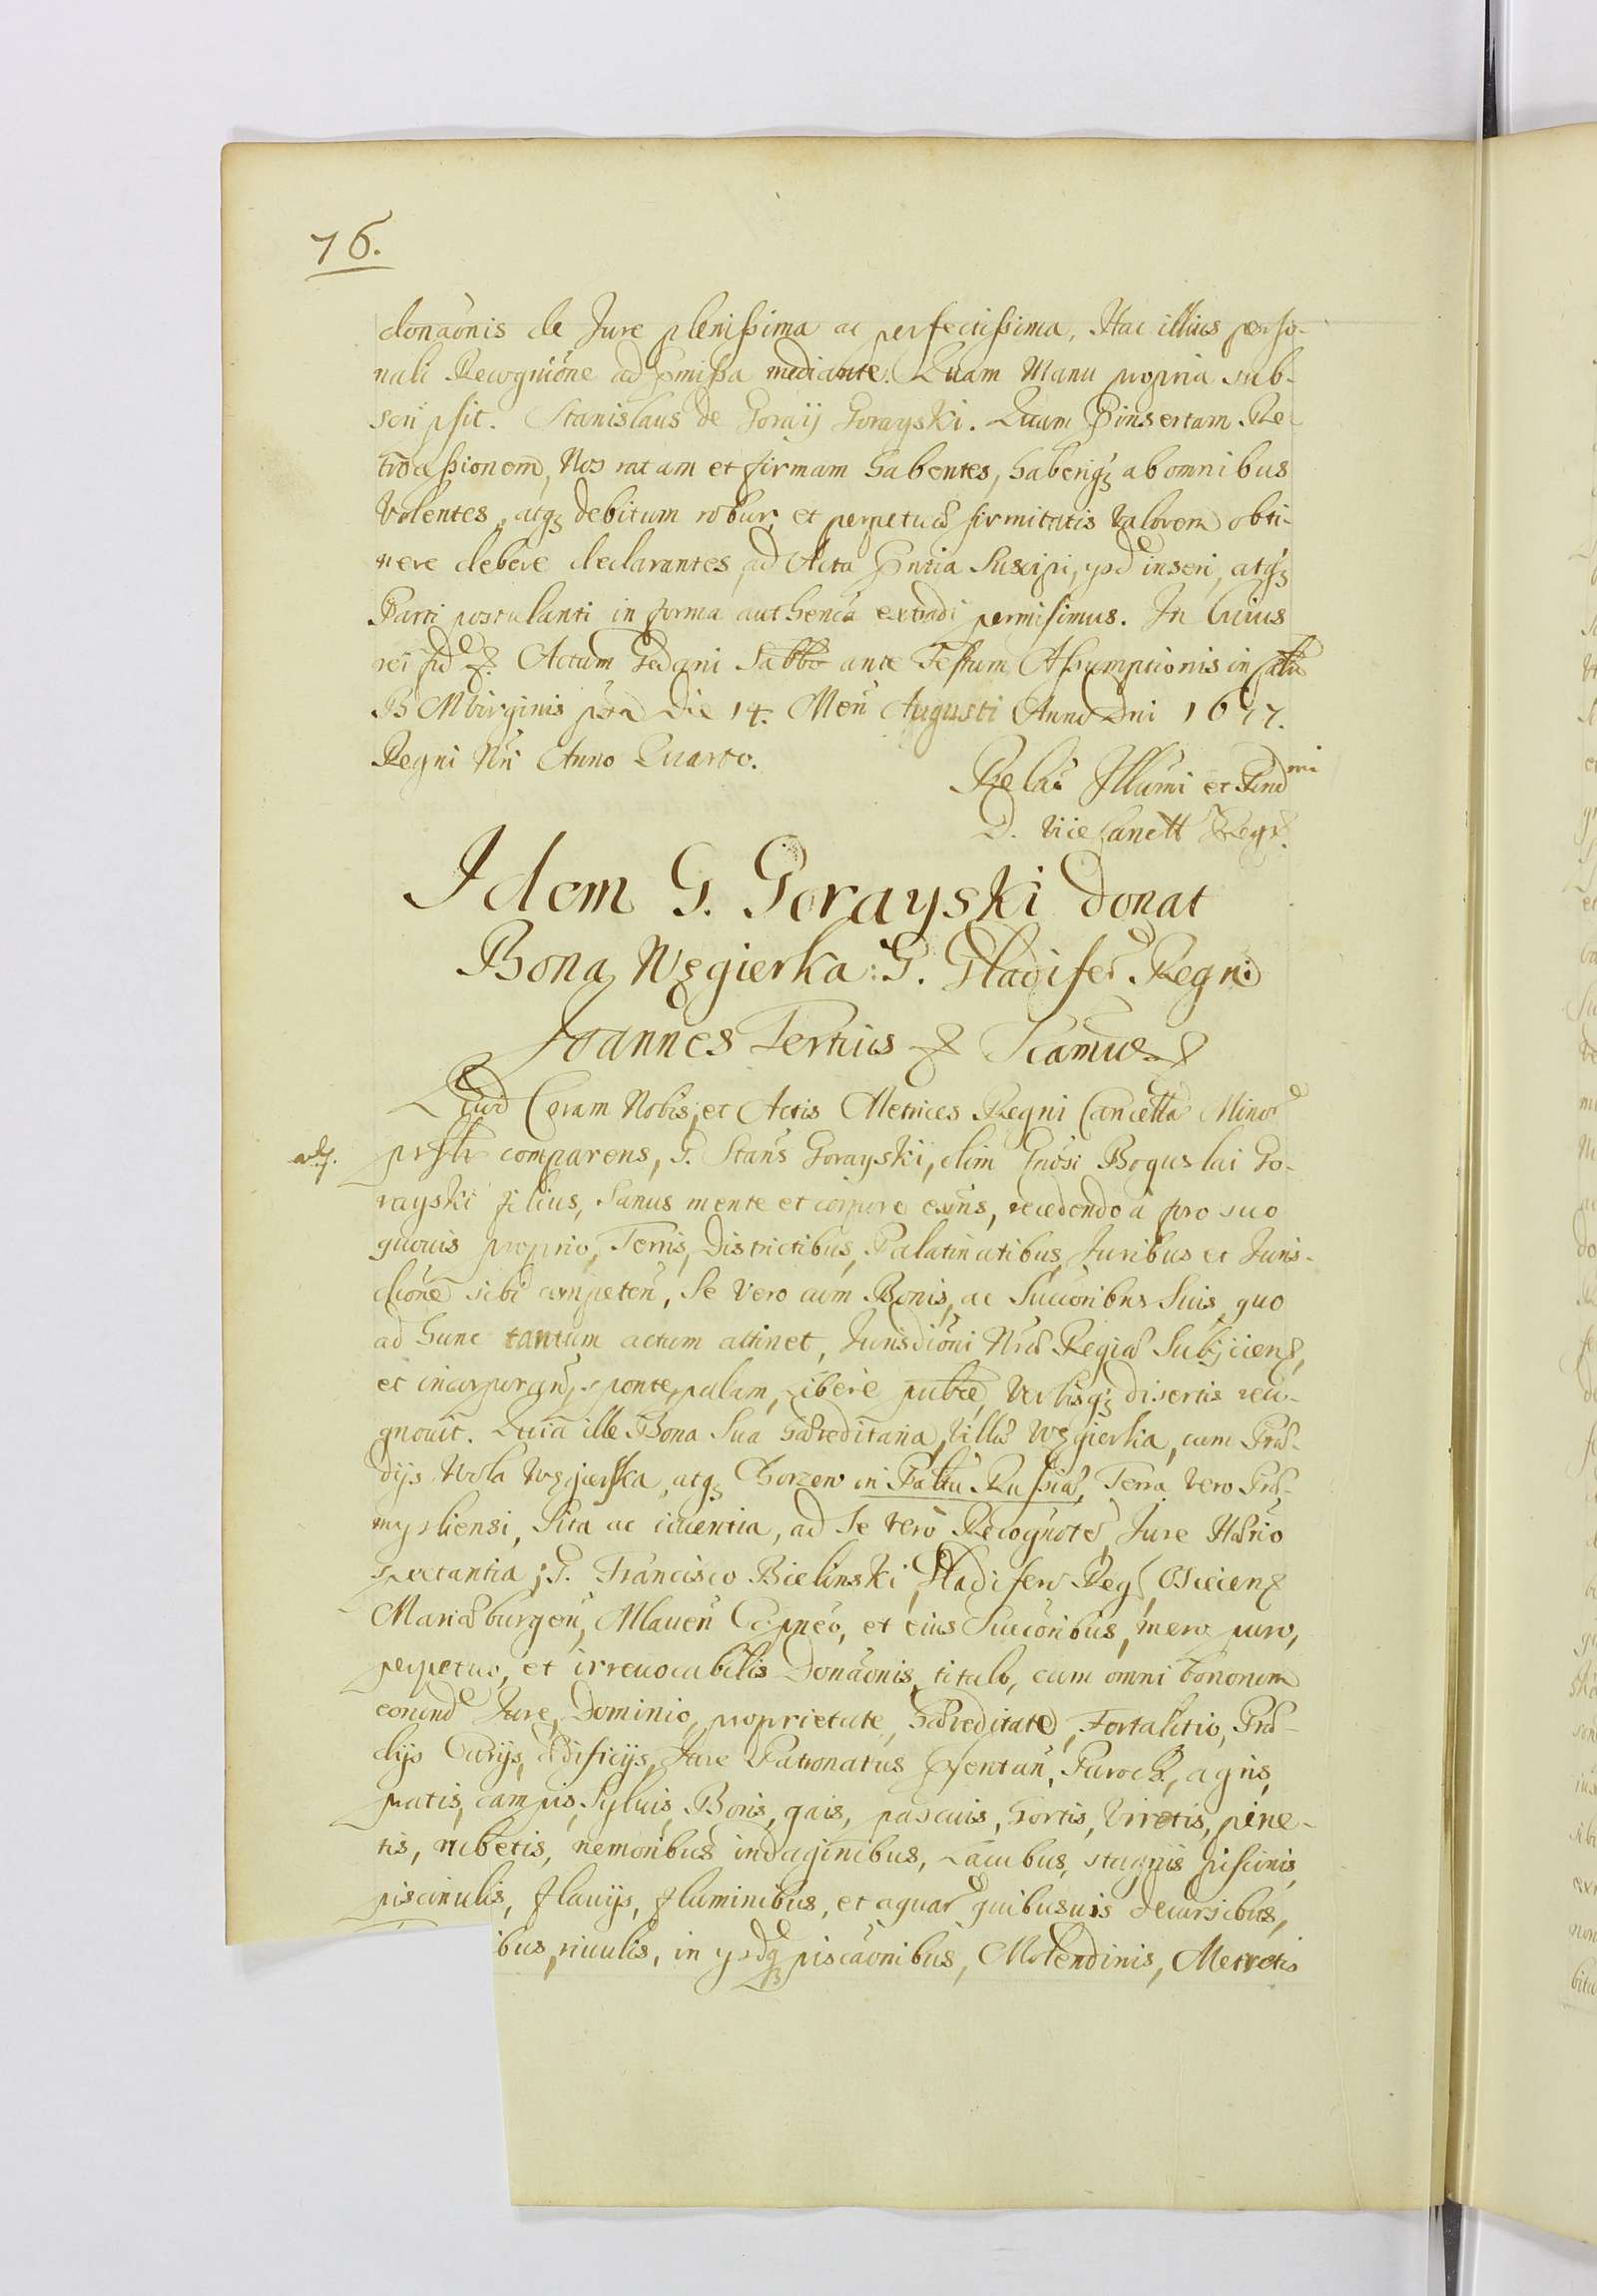 76.
donaonis de Jure plenissima ac perfectissima. Hac illius perso-
nali Recognione ad pmissa mediante. Quam Manu propria sub-
scripsit. Stanislaus de Goraij Gorayski. Quam pinsertam Re-
trocessionem, Nos ratam et firmam habentes, haberiq3 ab omnibus
Volentes, atq3 debitum robur et perpetuæ firmitatis Valorem obti-
nere debere declarantes, ad Acta pntia Suscipi, ysd inseri, atq3
Parti postulanti in forma authenca extradi permisimus. In Cuius
rei fid Actum Gedani Sabbo ante Festum Assumptionis in
B M Virginis die 14. Men Augusti Anno Dni 1677.
Regni Nri Anno Quarto.
Relao Illumi et Rndmi
D. Vice Cancell Regn.
Idem G. Gorayski donat
Bona Węgierka: G. Gladifero Regni
Joannes Tertius Scamus
Quod Coram Nobis, et Actis Metrices Regni Cancella Minor
prsltr comparens, G. Stans Gorayski, olim Gnosi Boguslai Go-
rayski filius, Sanus mente et corpore exns, recedendo a foro suo
quouis proprio, Terris, Districtibus, Palatinatibus, Juribus et Juris-
dicone sibi competen, Se vero cum Bonis, ac Succoribus Suis, quo
ad hunc tantum actum attinet, Jurisdioni Nræ Regiæ Subjicien,
et incorporan, sponte, palam, Libere publce, Verbisq3 disertis reco-
gnouit. Quia ille Bona Sua hæreditaria, Villæ Węgierka, cum Præ-
dijs Wola Węgierska, atq3 Chorzew in Palttu Russiæ, Terra vero Præ-
mysliensi, Sita ac iacentia, ad Se vero Recognote, Jure Hærio
spectantia; G. Francisco Bielinski, Gladifero Reg, Oscien
Mariæburgen, Mlauen Capneo, et eius Succoribus, mero puro,
perpetuo, et irreuocabilis Donaonis titulo, cum omni bonorum
eorund Jure, Dominio, proprietate, hæreditate, Fortalitio, Præ-
dijs Curijs, ædificijs, Jure Patronatus psentan, Paroch, agris,
pratis, campis, Syluis, Boris, gais, pascuis, hortis, Virretis, pine-
tis, rubetis, nemoribus indaginibus, Lacubus, stagnis piscinis,
piscinulis, fluuijs, fluminibus, et aquar quibusuis decursibus,
ibus, riuulis, in ysdq3 piscaonibus, Molendinis, Metretis